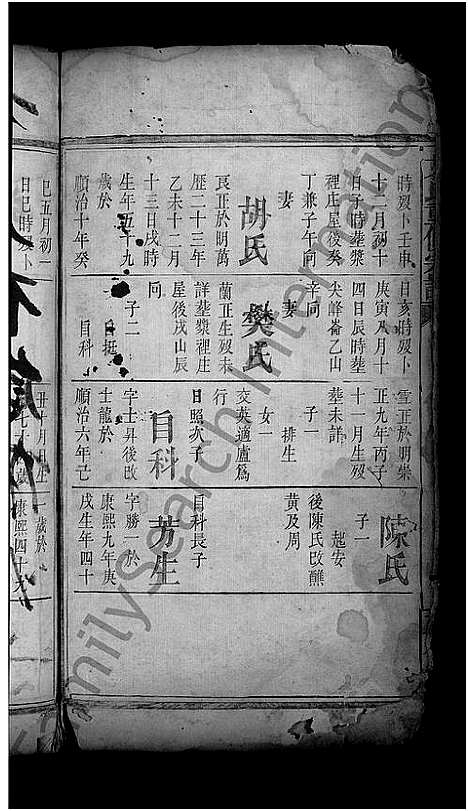 時歿卜壬申
十二月初十
日子時塟漿
裡庄屋後癸
丁兼子午向
妻
胡氏
良正於明萬
歴二十三年
乙未十二月
十三日戌時
生年五十九
歲於
順治十年癸
巳五月初二
日巳時歿卜
日亥時歿卜
庚寅八月十
四日辰時塟
尖峰崙乙山
辛向
妻
樊氏
蘭正生歿未
詳塟漿裡庄
屋後戌山辰
向
子二
自挺
自科
雪正於明崇
正九年丙子
十一月生歿
塟未詳
子一
排生
女一
交英適廬爲
行
日照次子
自科
字士昇後改
士龍於
順治六年己
丑十月
陳氏
子一
起安
後陳氏改醮
黄及周
自科長子
芳生
字勝一於
康熙九年庚
戌生年四十
歲於
康熙四十九
FamilySearch International